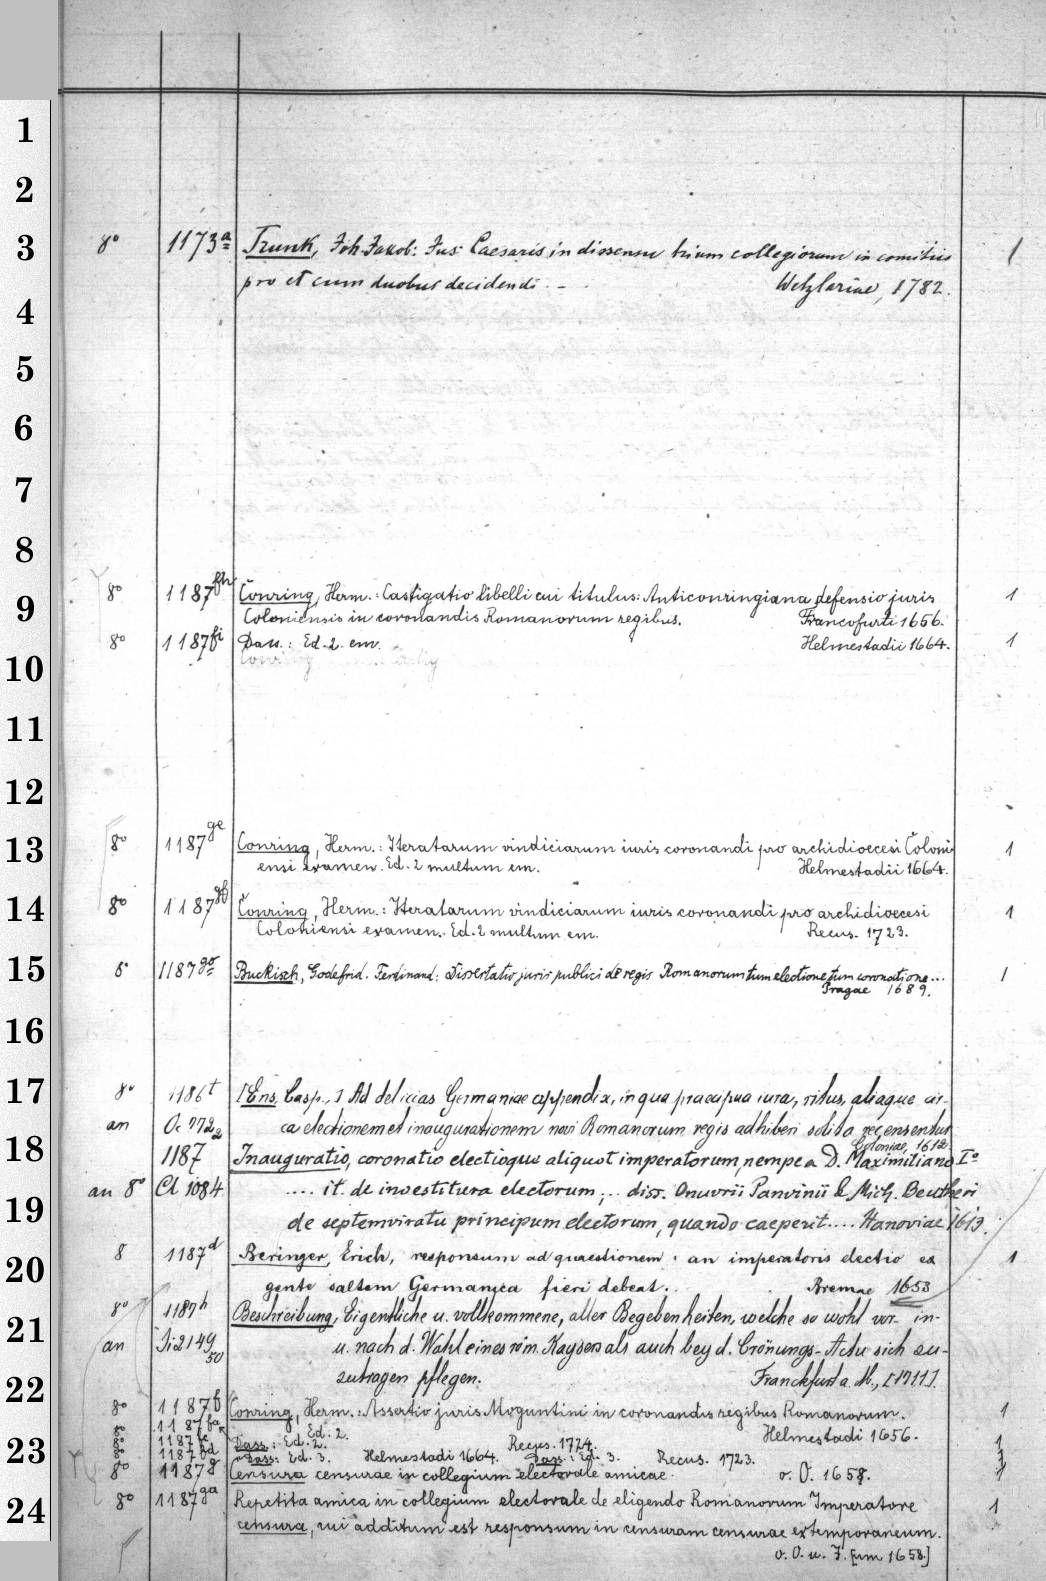 1
2
3
8° 1173a Trunk, Joh. Jakob: Jus Caesaris in dissensu trium collegiorum in comitiis 1
pro et cum duobus decidendi. – Wetzlariae, 1782.
4
5
6
7
8
9
8° 1187fh Conring, Herm.: Castigatio libelli cui titulus: Anticonringiana defensio juris 1
Coloniensis in coronandis Romanorum regibus. Francofurti 1656.
8° 1187fi Dass.: Ed. 2. em. Helmestadii 1664. 1
10
Conring
11
12
13
8° 1187ge Conring, Herm.: Iteratarum vindiciarum iuris coronandi pro archidioecesi Coloni 1
ensi examen. Ed. 2 multum em. Helmestadii 1664.
14
8° 1187gf Conring, Herm.: Iteratarum vindiciarum iuris coronandi pro archidioecesi 1
Coloniensi examen. Ed. 2 multum em. Recus. 1723.
15
8° 1187go Buckisch, Godefrid. Ferdinand: Dissertatio juris publici de regis Romanorum tum electione tum coronatione... 1
Pragae 1689.
16
17
8° 1186t [Ens, Casp.,] Ad delicias Germaniae appendix, in qua praecipua iura, ritus, aliaque cir-
an Oc 772 2 ca electionem et inaugurationem novi Romanorum regis adhiberi solita recensentur
Coloniae, 1612.
18
1187 Inauguratio, coronatio electioque aliquot imperatorum, nempe a D. Maximiliano Io
an 8° Cl 1084 .... it. de investitura electorum;.. diss. Onuvrii Panvinii & Mich. Beutheri
19
de septemviratu principum electorum, quando caeperit.... Hanoviae 1613.
20
8 1187d Beringer, Erich, responsum ad quaestionem: an imperatoris electio ex 1
gente saltem Germanica fieri debeat. Bremae 1653
21
8° 1187h Beschreibung, Eigentliche u. vollkommene, aller Begebenheiten, welche so wohl vor- in-
an Ji 2149 50 u. nach d. Wahl eines röm. Kaysers als auch bey d. Crönungs-Actu sich zu-
22
zutragen pflegen. Franckfurt a. M., [1711].
8° 1187f Conring, Herm.: Assertio juris Moguntini in coronandis regibus Romanorum. 1
1187fa Ed. 2. Helmestadi 1656.
23
1187fc Dass.: Ed. 2. Recus. 1724. 1
1187fd Dass: Ed. 3. Helmestadi 1664. Dass.: Ed. 3. Recus. 1723.
8° 1187g Censura censurae in collegium electorale amicae. o. O. 1658. 1
24
8° 1187ga Repetita amica in collegium electorale de eligendo Romanorum Imperatore 1
censura, cui additum est responsum in censuram censurae extemporaneum.
o. O. u. J. [um 1658]